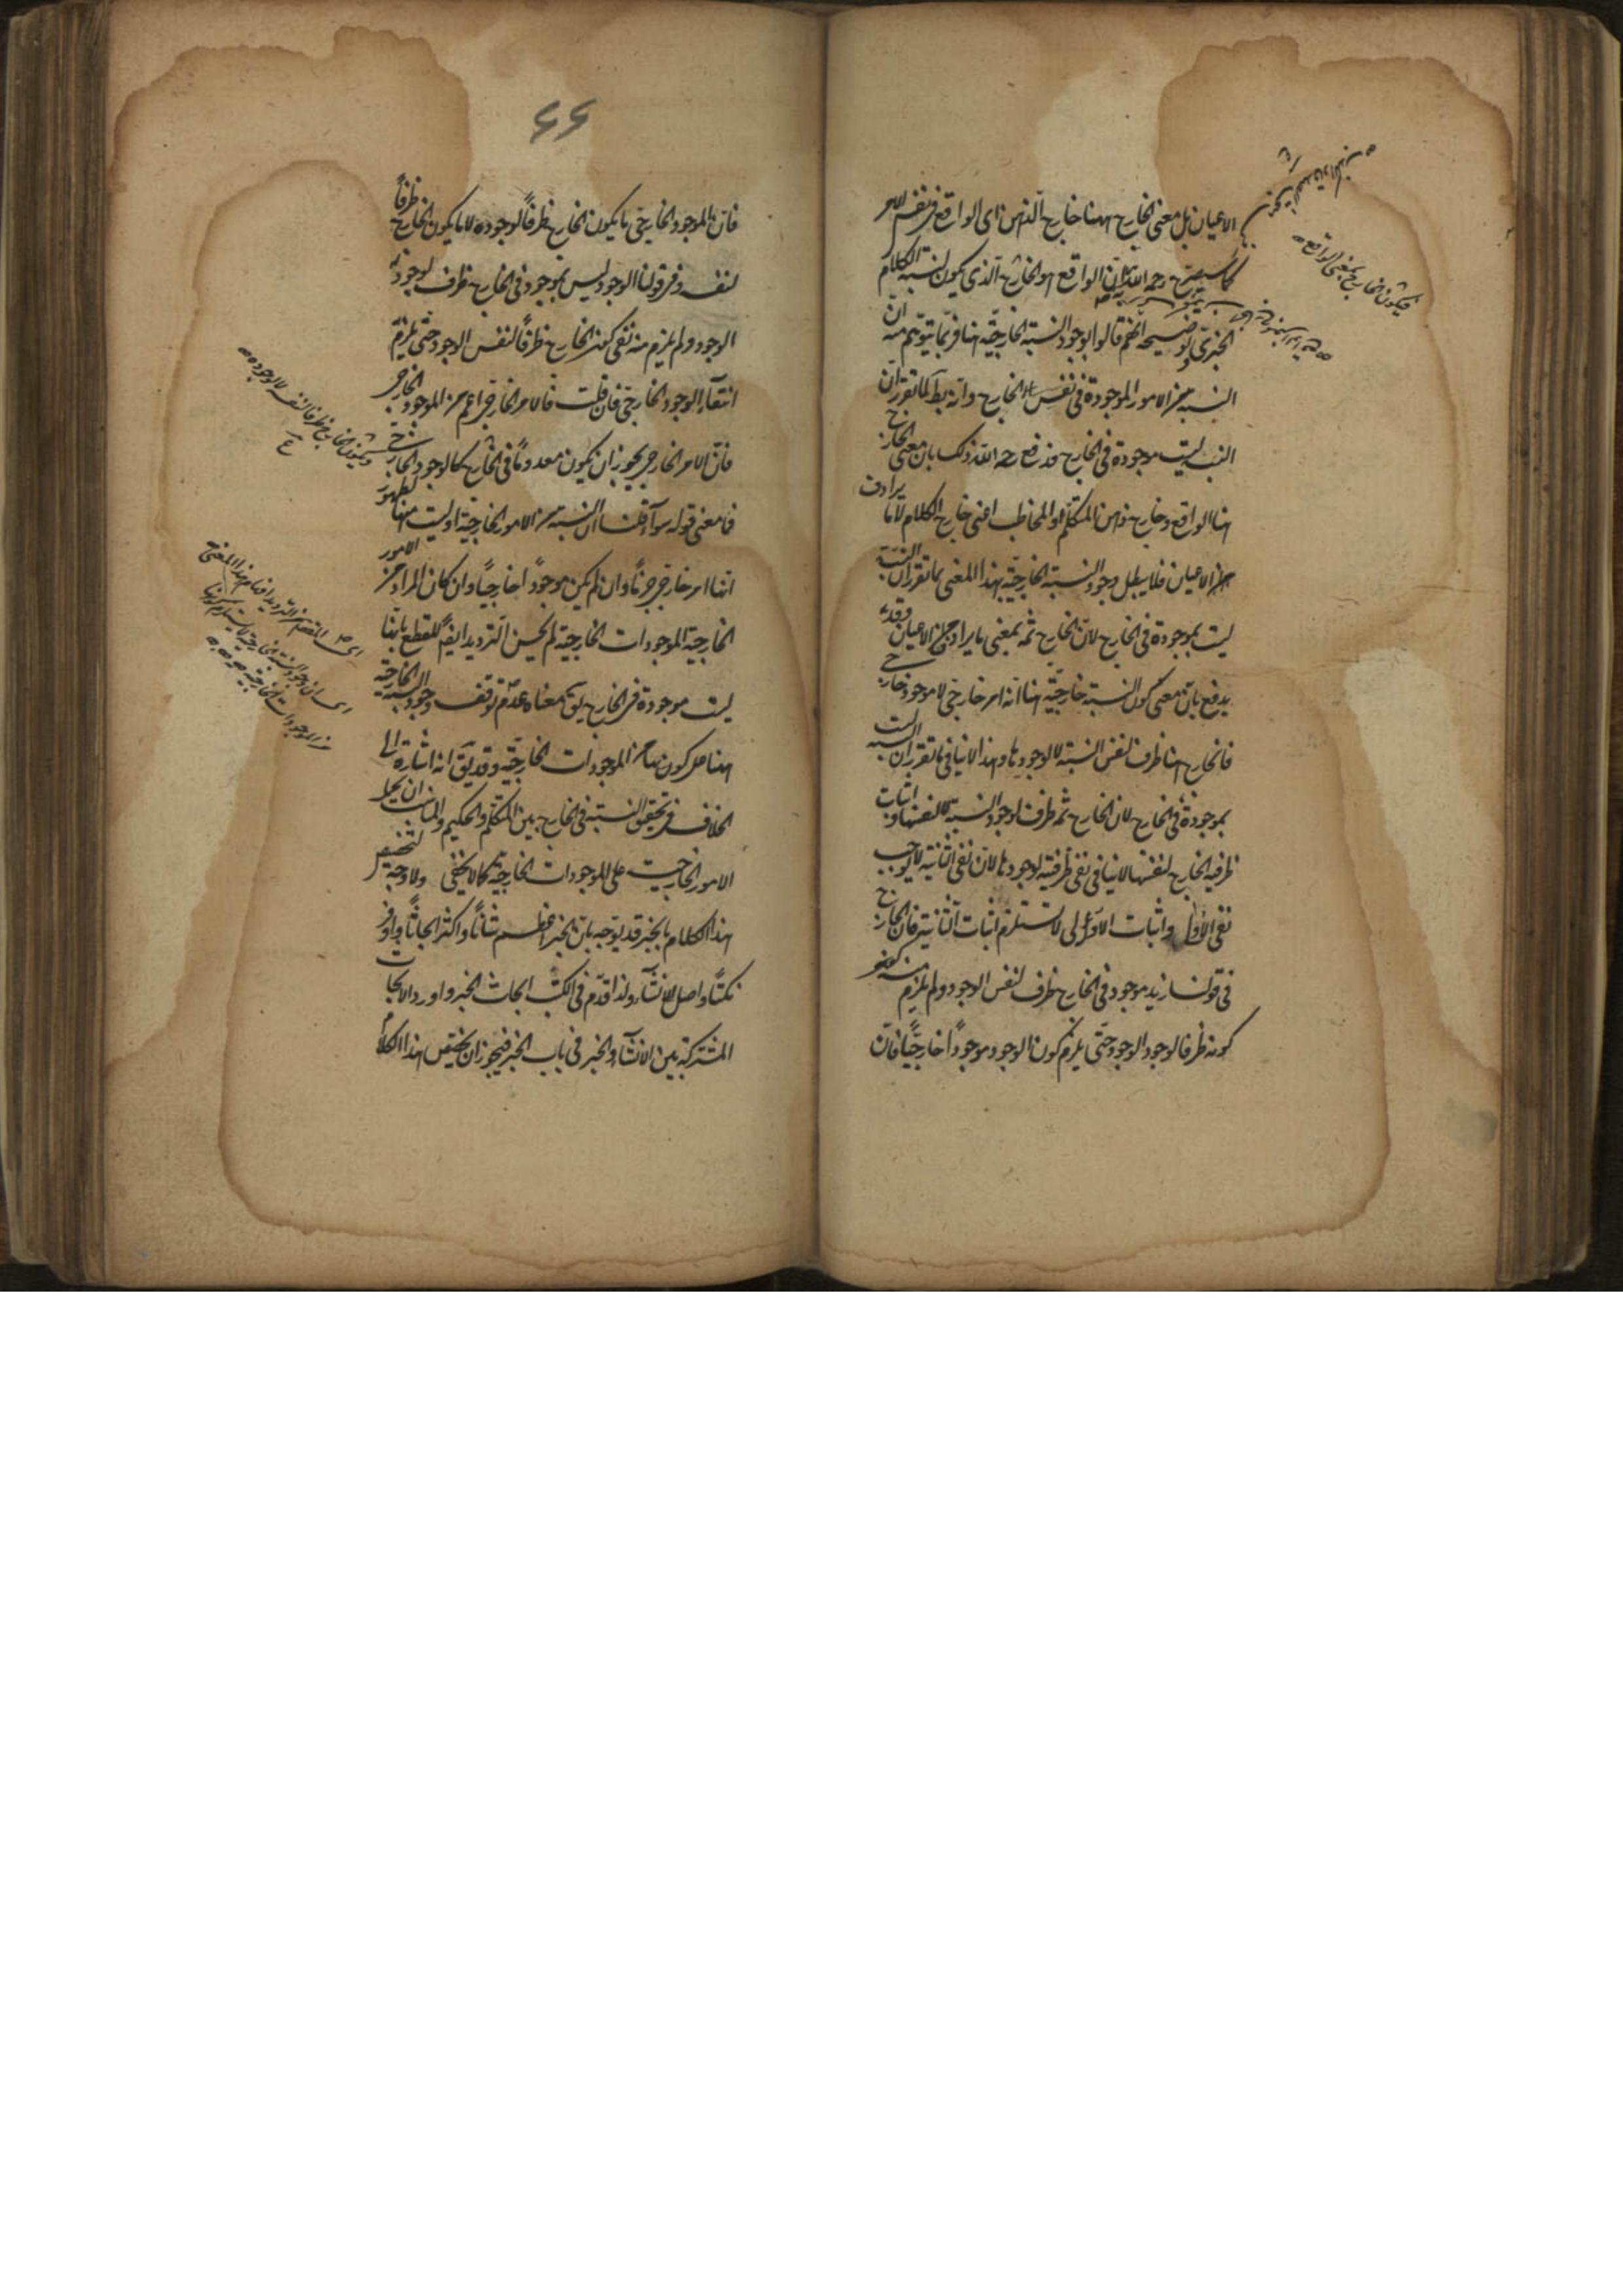 الاعيان بل معنى الخارج ههنا خارج الذهن اى الواقع فى نفس الامر
كما سيصرح رحمه الله ان الواقع هو الخارج الذى يكون لنسبة الكلام
الخبرى توضيحه انهم قالوا بوجود النسبة الخارجية هنا فربما يتوهم منه ان
النسبة من الامور الموجودة فى نفس الخارج وانه بط لما تقرر ان
النسب ليست موجودة فى الخارج فدفع رحمه الله ذلك بان معنى الخارج
هنا الواقع وخارج ذهن المتكلم والمخاطب اعنى خارج الكلام لا ما يرادف
الاعيان فلا يبطل وجود النسبة الخارجية بهذا المعنى بما تقرر ان النسبة
ليست بموجودة فى الخارج لان الخارج ثمه بمعنى ما يرادف الاعيان وقد
يدفع بان معنى كون النسبة خارجية هنا انه امر خارجى لا موجود خارجى
فالخارج هنا ظرف لنفس النسبة لا لوجودها وهذا لا ينافى ما تقرر ان النسبة ليست
بموجودة فى الخارج لان الخارج ثمه ظرف لوجود النسبة لا لنفسها واثبات
ظرفية الخارج لنفسها لا ينافى نفى ظرفيته لوجودها لان نفى الثانية لا يوجب
نفى الاولى واثبات الاولى لا يستلزم اثبات الثانية فان الخارج
فى قولنا زيد موجود فى الخارج ظرف لنفس الوجود ولم يلزم منه
كونه ظرفا لوجود الوجود حتى يلزم كون الوجود موجودا خارجيا فان
فيكون الخارج بمعنى الواقع
٤٤
فان الموجود الخارجى ما يكون الخارج ظرفا لوجوده لا ما يكون الخارج ظرفا
لنفسه وفى قولنا الوجود ليس بموجود فى الخارج ظرف لوجود
الوجود ولم يلزم منه نفى كون الخارج ظرفا لنفس الوجود حتى يلزم
انتفاء الوجود الخارجى فان قلت فالامر الخارجى اعم من الموجود الخارجى
فان الامر الخارجى يجوز ان يكون معدوما فى الخارج كالوجود الخارجى
فما معنى قوله سواء قلنا ان النسبة من الامور الخارجية او ليست منها لظهور
انها امر خارجى جزما وان لم يكن موجودا خارجيا وان كان المراد من الامور
الخارجية الموجودات الخارجية لم يحسن الترديد ايضا للقطع بانها
ليست موجودة فى الخارج يق معناه عدم توقف وجود النسبة الخارجية
هنا على كونها من الموجودات الخارجية وقد يق انه اشارة الى
الخلاف فى تحقق النسبة فى الخارج بين المتكلم والحكيم والمناسب ان يحمل
الامور الخارجية على الموجودات الخارجية كما لا يخفى ولا وجه لتخصيص
هذا الكلام بالخبر قد يوجه بان الخبر اعظم شانا واكثر ابحاثا واوفر
نكتا واصل للانشاء ولذا قدم فى الكتب ابحاث الخبر واورد الابحاث
المشتركة بين الانشاء والخبر فى باب الخبر فيجوز ان يختص هذا الكلام
ويكون الخارج ظرفا لنفسه لا لوجوده